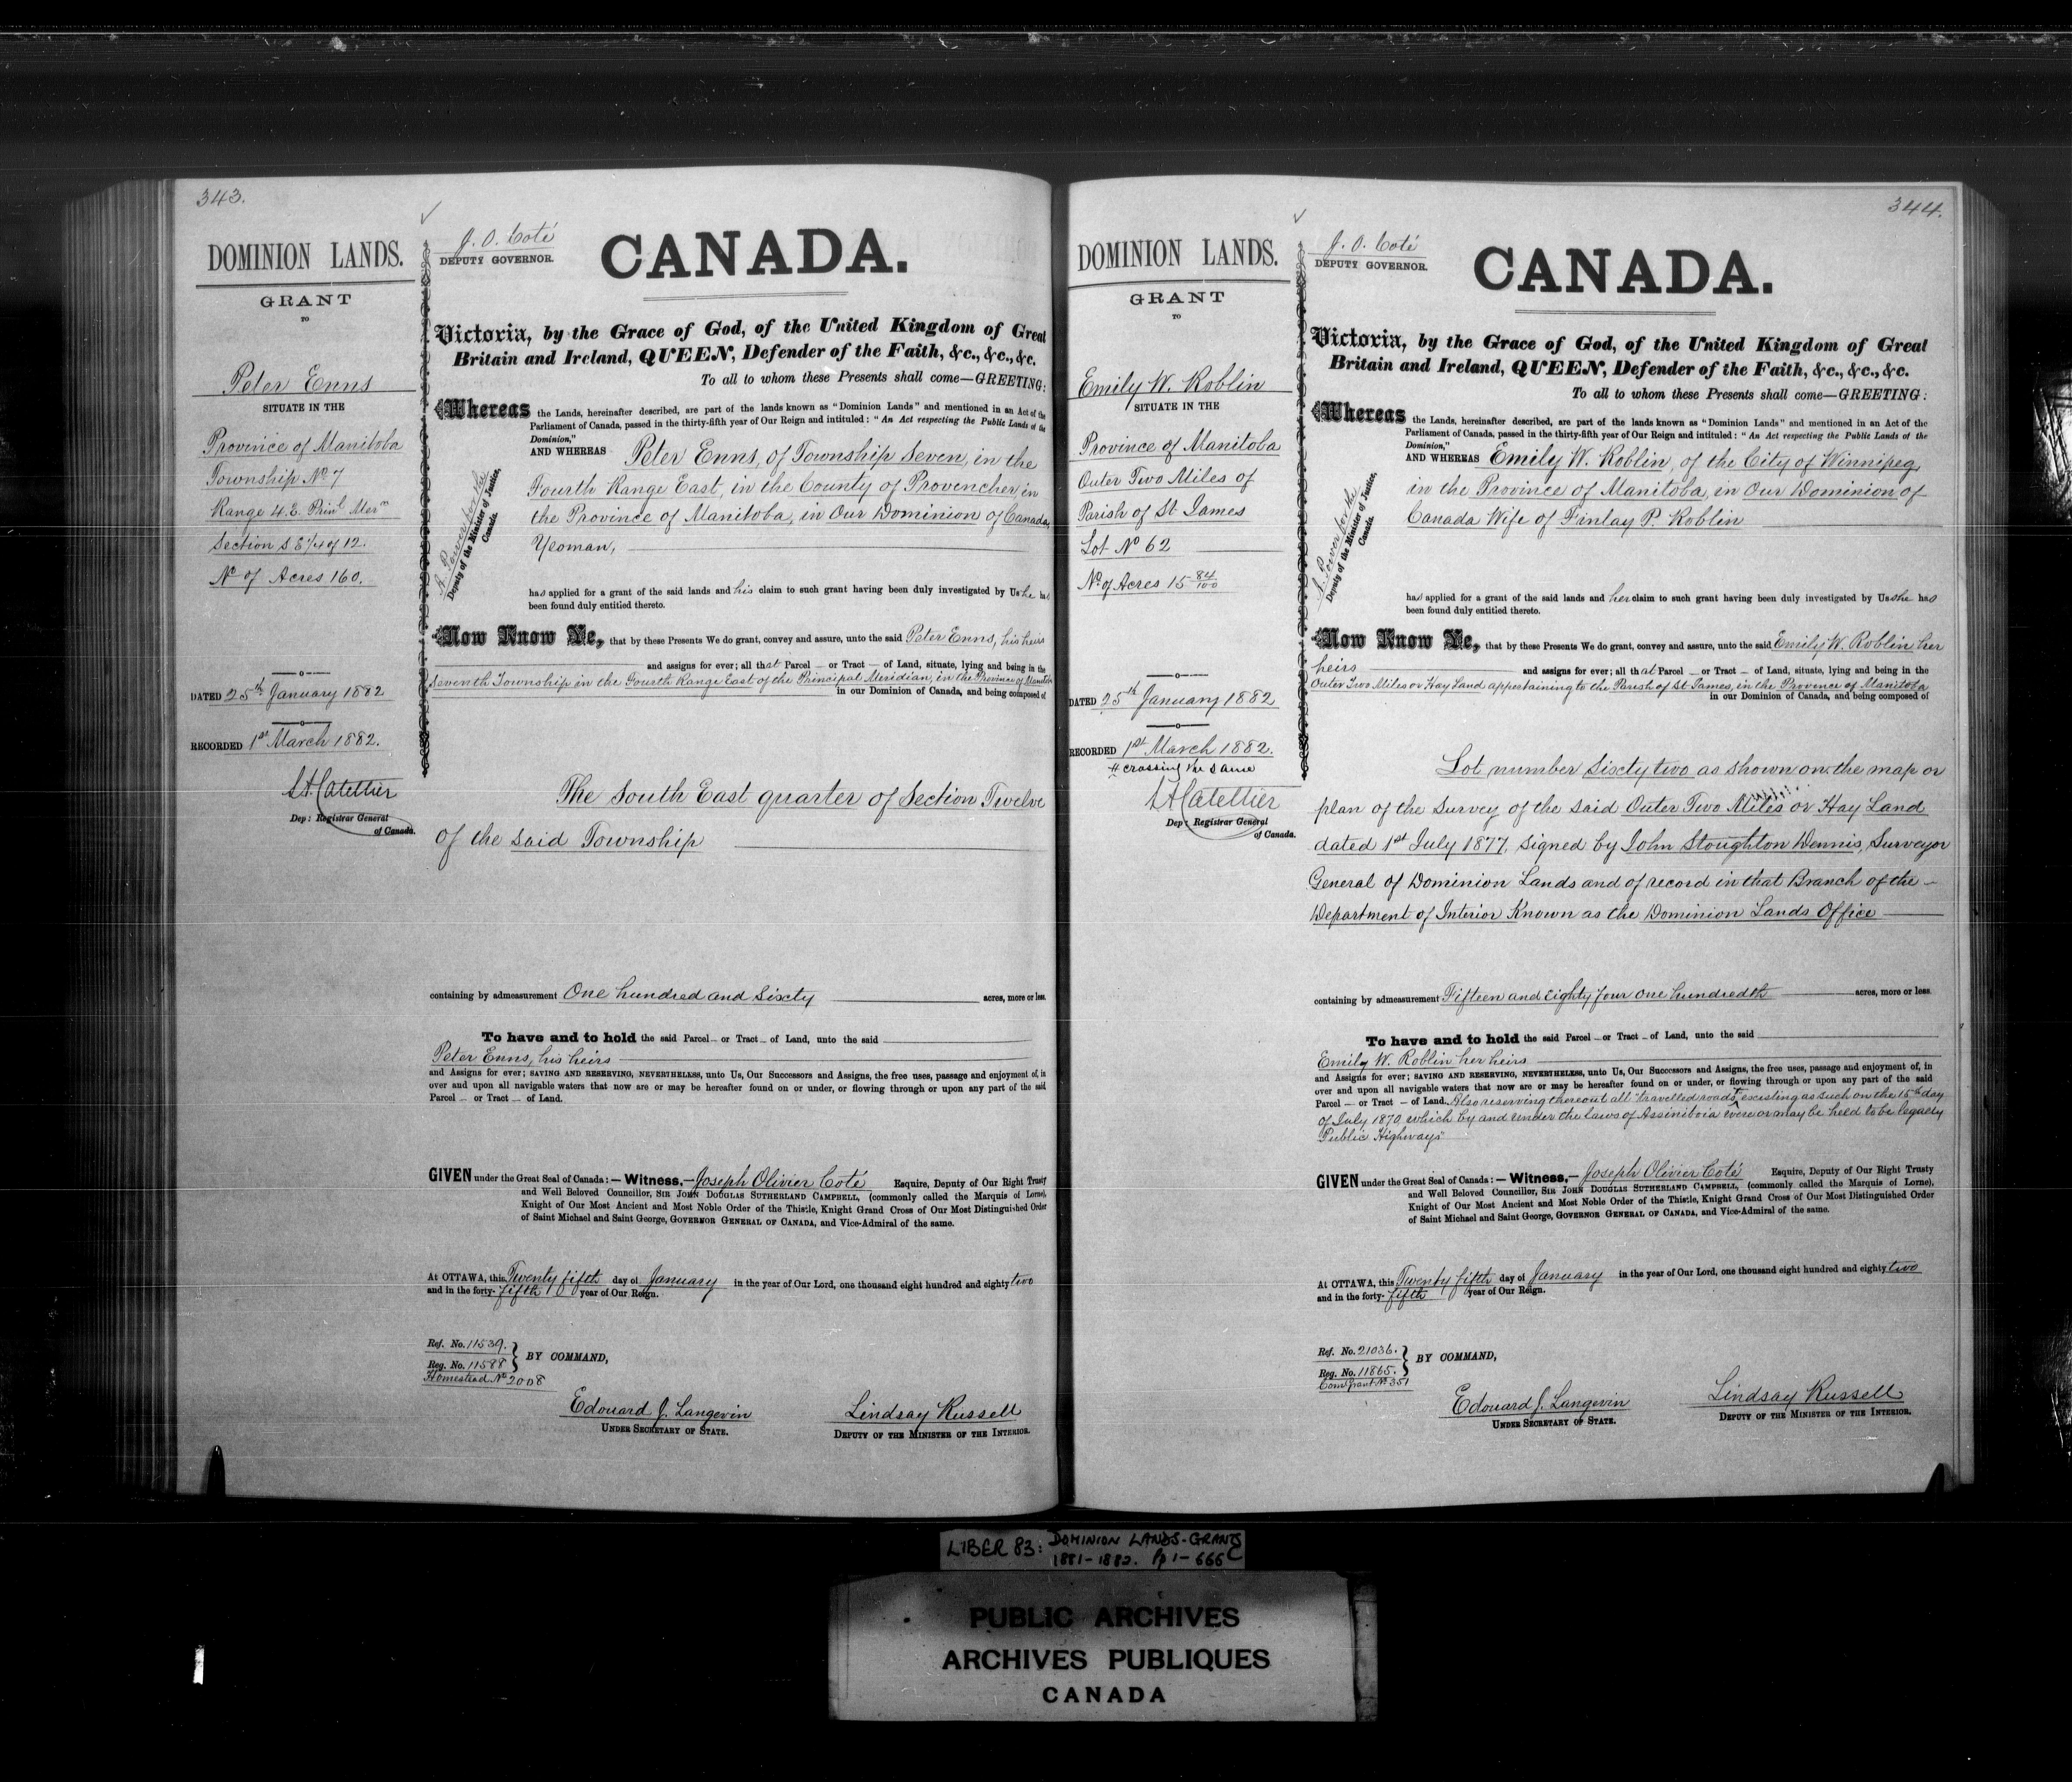 343.
DOMINION LANDS.
GRANT
TO
Peter Enns
SITUATE IN THE
Province of Manitoba
Township No 7
Range 4.E. Prinl Mern
Section S E 1/4 of 12.
No of Acres 160.
DATED 25th January 1882
RECORDED 1st March 1882.
Dep: Registrar General
of Canada.
J. O. Coté
DEPUTY GOVERNOR.
CANADA.
Victoria, by the Grace of God, of the United Kingdom of Great
Britain and Ireland, QUEEN, Defender of the Faith, &c., &c., &c.
To all to whom these Presents shall come—GREETING:
Whereas the Lands, hereinafter described, are part of the lands known as "Dominion Lands" and mentioned in an Act of the
Parliament of Canada, passed in the thirty-fifth year of Our Reign and intituled: "An Act respecting the Public Lands of the
Dominion,"
AND WHEREAS Peter Enns, of Township Seven, in the
Fourth Range East, in the County of Provencher in
the Province of Manitoba, in Our Dominion of Canada,
Yeoman,
A. Power for the
Deputy of the Minister of Justice,
Canada.
has applied for a grant of the said lands and his claim to such grant having been duly investigated by Us he has
been found duly entitled thereto.
Now Know Ye, that by these Presents We do grant, convey and assure, unto the said Peter Enns, his heirs
and assigns for ever; all that Parcel — or Tract — of Land, situate, lying and being in the
Seventh Township in the Fourth Range East of the Principal Meridian, in the Province of Manitoba
in our Dominion of Canada, and being composed of
The South East quarter of Section Twelve
of the said Township
containing by admeasurement One hundred and Sixty acres, more or less.
To have and to hold the said Parcel — or Tract — of Land, unto the said
Peter Enns, his heirs
and Assigns for ever; SAVING AND RESERVING, NEVERTHELESS, unto Us, Our Successors and Assigns, the free uses, passage and enjoyment of, in
over and upon all navigable waters that now are or may be hereafter found on or under, or flowing through or upon any part of the said
Parcel — or Tract — of Land.
GIVEN under the Great Seal of Canada: — Witness,— Joseph Olivier Coté Esquire, Deputy of Our Right Trusty
and Well Beloved Councillor, SIR JOHN DOUGLAS SUTHERLAND CAMPBELL, (commonly called the Marquis of Lorne),
Knight of Our Most Ancient and Most Noble Order of the Thistle, Knight Grand Cross of Our Most Distinguished Order
of Saint Michael and Saint George, GOVERNOR GENERAL OF CANADA, and Vice-Admiral of the same.
At OTTAWA, this Twenty fifth day of January in the year of Our Lord, one thousand eight hundred and eighty two
and in the forty-fifth year of Our Reign.
Ref. No. 11539.
Reg. No. 11588
Homestead No 2008
BY COMMAND,
Edouard J. Langevin
UNDER SECRETARY OF STATE.
Lindsay Russell
DEPUTY OF THE MINISTER OF THE INTERIOR.
344.
DOMINION LANDS.
GRANT
TO
Emily W. Roblin
SITUATE IN THE
Province of Manitoba
Outer Two Miles of
Parish of St James
Lot No 62
No of Acres 15 84/100
DATED 25th January 1882
RECORDED 1st March 1882.
# crossing the same
Dep: Registrar General
of Canada.
J. O. Coté
DEPUTY GOVERNOR.
CANADA.
Victoria, by the Grace of God, of the United Kingdom of Great
Britain and Ireland, QUEEN, Defender of the Faith, &c., &c., &c.
To all to whom these Presents shall come—GREETING:
Whereas the Lands, hereinafter described, are part of the lands known as "Dominion Lands" and mentioned in an Act of the
Parliament of Canada, passed in the thirty-fifth year of Our Reign and intituled: "An Act respecting the Public Lands of the
Dominion,"
AND WHEREAS Emily W. Roblin, of the City of Winnipeg,
in the Province of Manitoba, in Our Dominion of
Canada Wife of Finlay P. Roblin
A. Power for the
Deputy of the Minister of Justice,
Canada.
has applied for a grant of the said lands and her claim to such grant having been duly investigated by Us she has
been found duly entitled thereto.
Now Know Ye, that by these Presents We do grant, convey and assure, unto the said Emily W. Roblin her
heirs and assigns for ever; all that Parcel — or Tract — of Land, situate, lying and being in the
Outer Two Miles or Hay Land appertaining to the Parish of St James, in the Province of Manitoba
in our Dominion of Canada, and being composed of
Lot number Sixty two as shown on the map or
plan of the survey of the said Outer Two Miles or Hay Land
dated 1st July 1877, signed by John Stoughton Dennis, Surveyor
General of Dominion Lands and of record in that Branch of the —
Department of Interior Known as the Dominion Lands Office
containing by admeasurement Fifteen and eighty four one hundredth acres, more or less.
To have and to hold the said Parcel — or Tract — of Land, unto the said
Emily W. Roblin her heirs
and Assigns for ever; SAVING AND RESERVING, NEVERTHELESS, unto Us, Our Successors and Assigns, the free uses, passage and enjoyment of, in
over and upon all navigable waters that now are or may be hereafter found on or under, or flowing through or upon any part of the said
Parcel — or Tract — of Land. Also reserving thereout all "travelled roads # existing as such on the 15th day
of July 1870, which by and under the laws of Assiniboia were or may be held to be legally
Public Highways"
GIVEN under the Great Seal of Canada: — Witness,— Joseph Olivier Coté Esquire, Deputy of Our Right Trusty
and Well Beloved Councillor, SIR JOHN DOUGLAS SUTHERLAND CAMPBELL, (commonly called the Marquis of Lorne),
Knight of Our Most Ancient and Most Noble Order of the Thistle, Knight Grand Cross of Our Most Distinguished Order
of Saint Michael and Saint George, GOVERNOR GENERAL OF CANADA, and Vice-Admiral of the same.
At OTTAWA, this Twenty fifth day of January in the year of Our Lord, one thousand eight hundred and eighty two
and in the forty-fifth year of Our Reign.
Ref. No. 21036.
Reg. No. 11865.
Com Grant No 351
BY COMMAND,
Edouard J. Langevin
UNDER SECRETARY OF STATE.
Lindsay Russell
DEPUTY OF THE MINISTER OF THE INTERIOR.
LIBER 83: DOMINION LANDS-GRANTS
1881-1882. Pp 1-666
PUBLIC ARCHIVES
ARCHIVES PUBLIQUES
CANADA